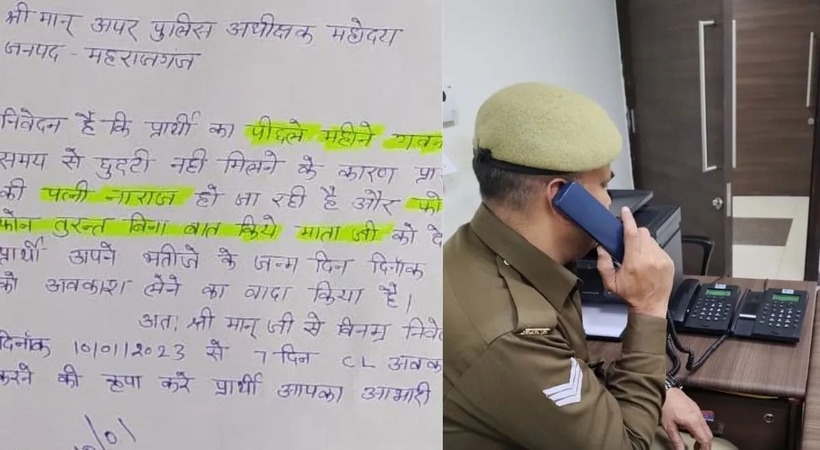 श्री मान् अपर पुलिस अधीक्षक महोदय
जनपद - महराजगंज
निवेदन है कि प्रार्थी का पीछले महीने
समय से छुट्टी नही मिलने के कारण
की पत्नी नाराज हो जा रही है और
फोन तुरन्त बिना बात किये माता जी को
प्रार्थी अपने भतीजे के जन्म दिन दिनॉक
को अवकाश लेने का वादा किया है।
अतः श्री मान् जी से विनम्र
दिनॉक 10/01/2023 से 7 दिन CL
करने की कृपा करे प्रार्थी आपका आभारी